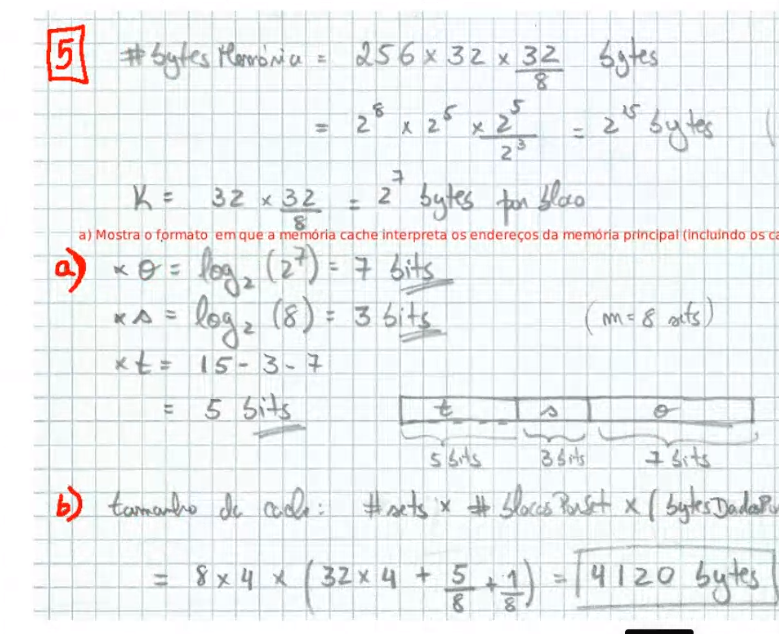 5 # bytes Memória = 256 × 32 × 32/8 bytes
= 2^8 × 2^5 × 2^5/2^3 = 2^15 bytes (
K = 32 × 32/8 = 2^7 bytes por bloco
a) Mostra o formato em que a memória cache interpreta os endereços da memória principal (incluindo os ca
a) × θ = log₂ (2^7) = 7 bits
× s = log₂ (8) = 3 bits (m = 8 sets)
× t = 15 - 3 - 7
= 5 bits
t s θ
5 bits 3 bits 7 bits
b) tamanho da cache: # sets × # blocos PorSet × (bytesDadosPo
= 8 × 4 × (32 × 4 + 5/8 + 1/8) = 4120 bytes